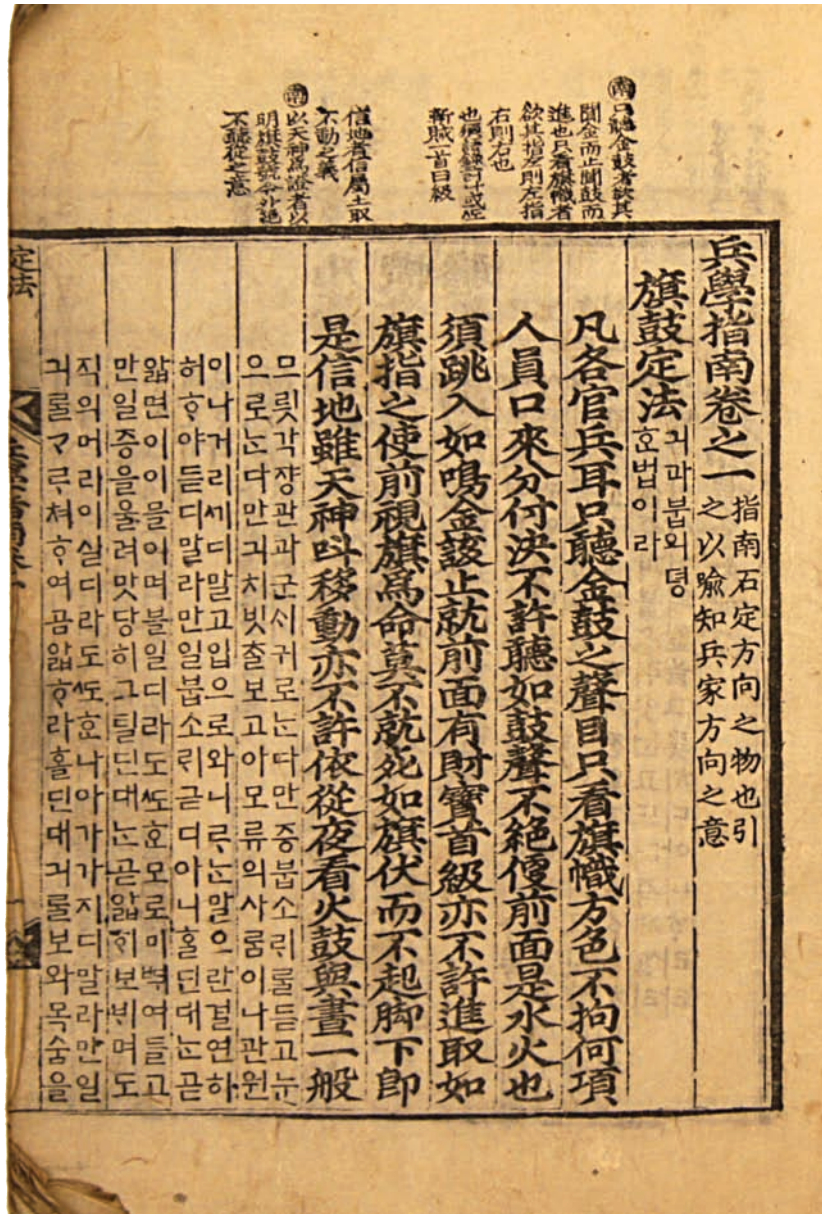 南 只聽金鼓者欲其
聞金而止聞鼓而
進也只看旗幟者
欲其指左則左指
右則右也
斬賊一首曰級
信地者信屬土取
不動之義
南 以天神爲證者以
明旗鼓號令外絶
不聽從之意
兵學指南卷之一 指南石定方向之物也引
之以喩知兵家方向之意
旗鼓定法 긔과붑의뎡
ᄒᆞᆫ법이라
凡各官兵耳只聽金鼓之聲目只看旗幟方色不拘何項
人員口來分付決不許聽如鼓聲不絶便前面是水火也
須跳入如鳴金該止就前面有財寶首級亦不許進取如
旗指之使前視旗爲命莫不就死如旗伏而不起脚下卽
是信地雖天神叫移動亦不許依從夜看火鼓與晝一般
므릣각쟝관과군시귀로ᄂᆞᆫ다만증붑소ᄅᆡᄅᆞᆯ듣고눈
으로ᄂᆞᆫ다만긔치빗ᄎᆞᆯ보고아모류의사ᄅᆞᆷ이나관원
이나거리ᄭᅵ디말고입으로와니ᄅᆞᄂᆞᆫ말으란결연하
허ᄒᆞ야듣디말라만일붑소ᄅᆡ귿디아니ᄒᆞᆯ딘대ᄂᆞᆫ곧
앏면이이믈이며블일디라도ᄯᅩᄒᆞᆫ모로미ᄠᅱ여들고
만일증을울려맛당히그틸딘대ᄂᆞᆫ곧앏ᄒᆡ보ᄇᆡ며도
직의머리이실디라도ᄯᅩᄒᆞᆫ나아가가지디말라만일
긔ᄅᆞᆯᄀᆞᄅᆞ쳐ᄒᆞ여곰앏ᄒᆞ라ᄒᆞᆯ딘대긔ᄅᆞᆯ보와목숨을
定法